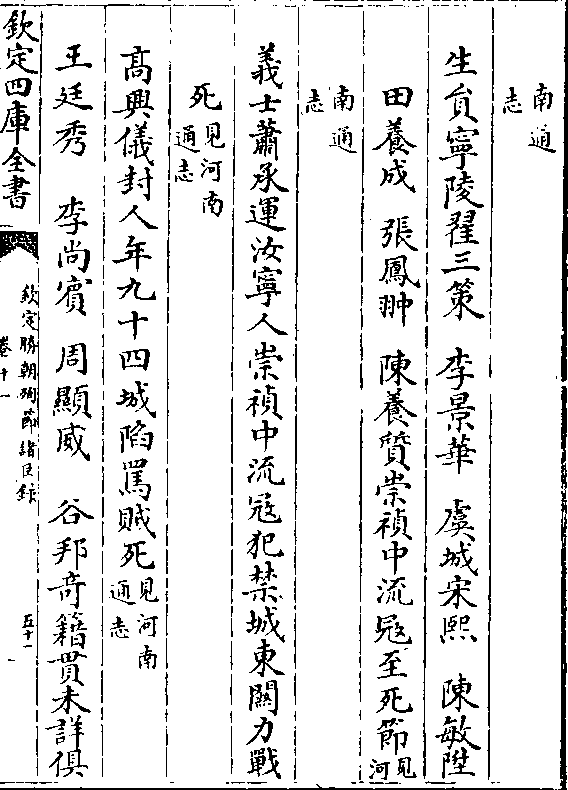 南通
志
生員寧陵翟三策　李景華　虞城宋熙　陳敏陞
田養成　張鳳翀　陳養質崇禎中流冦至死節見河
南通
志
義士蕭承運汝寧人崇禎中流冦犯禁城東闗力戰
死見河南
通志
髙興儀封人年九十四城陷罵賊死見河南
通志
王廷秀　李尚賓　周顯威　谷邦竒籍貫未詳俱
欽定四庫全書
欽定勝朝殉節諸臣錄
卷十一
五十一